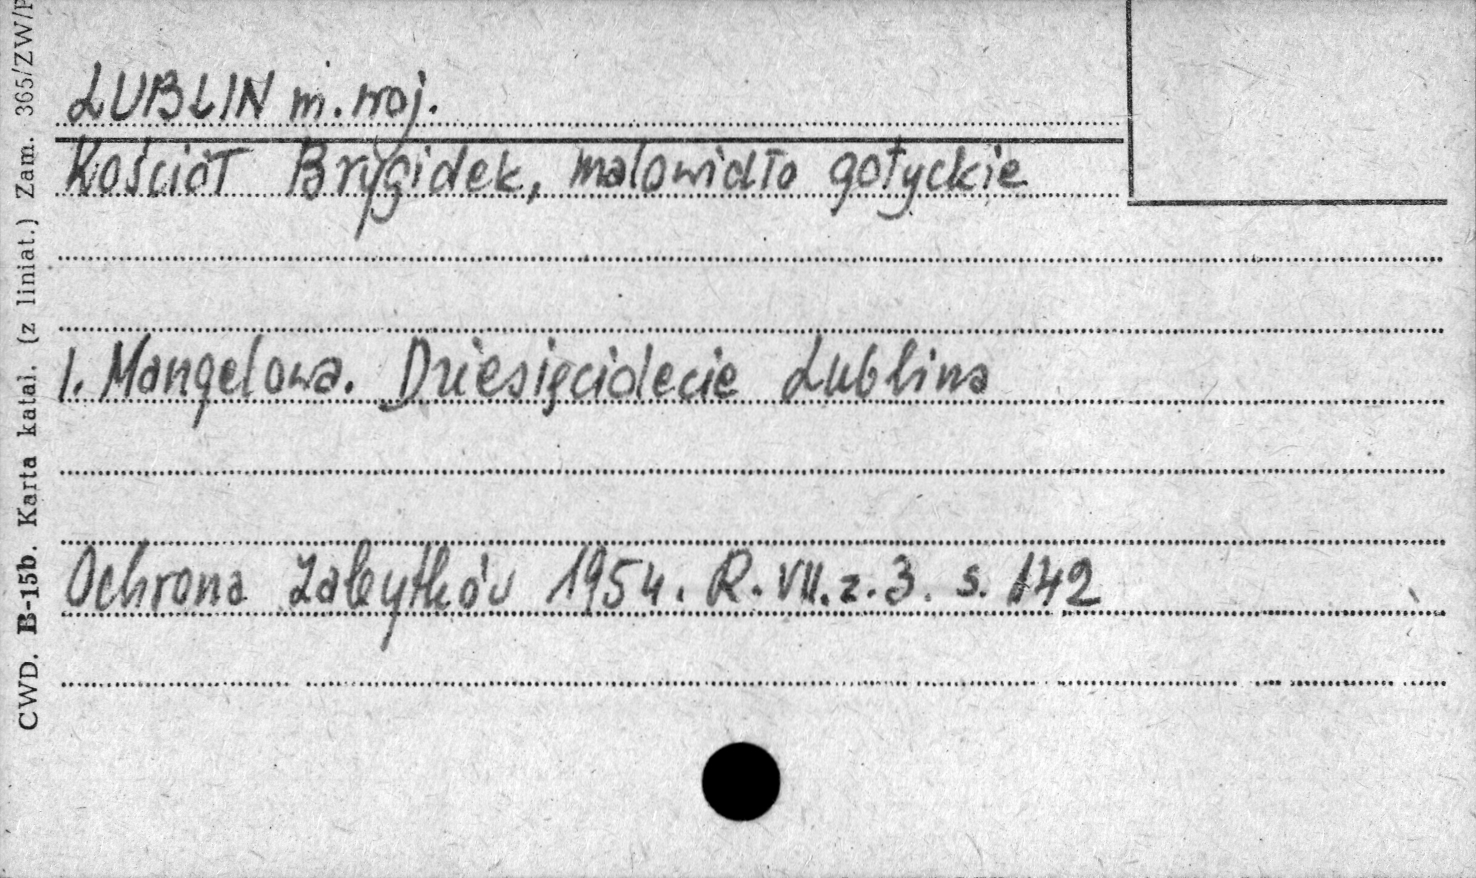 LUBLIN m. woj.
Kościół Brygidek, malowidło gotyckie
I. Mangelowa. Dziesięciolecie Lublina
Ochrona Zabytków 1954. R. VII. z. 3. s. 142
CWD. B-15b. Karta katal. (z liniat.) Zam. 365/ZW/P